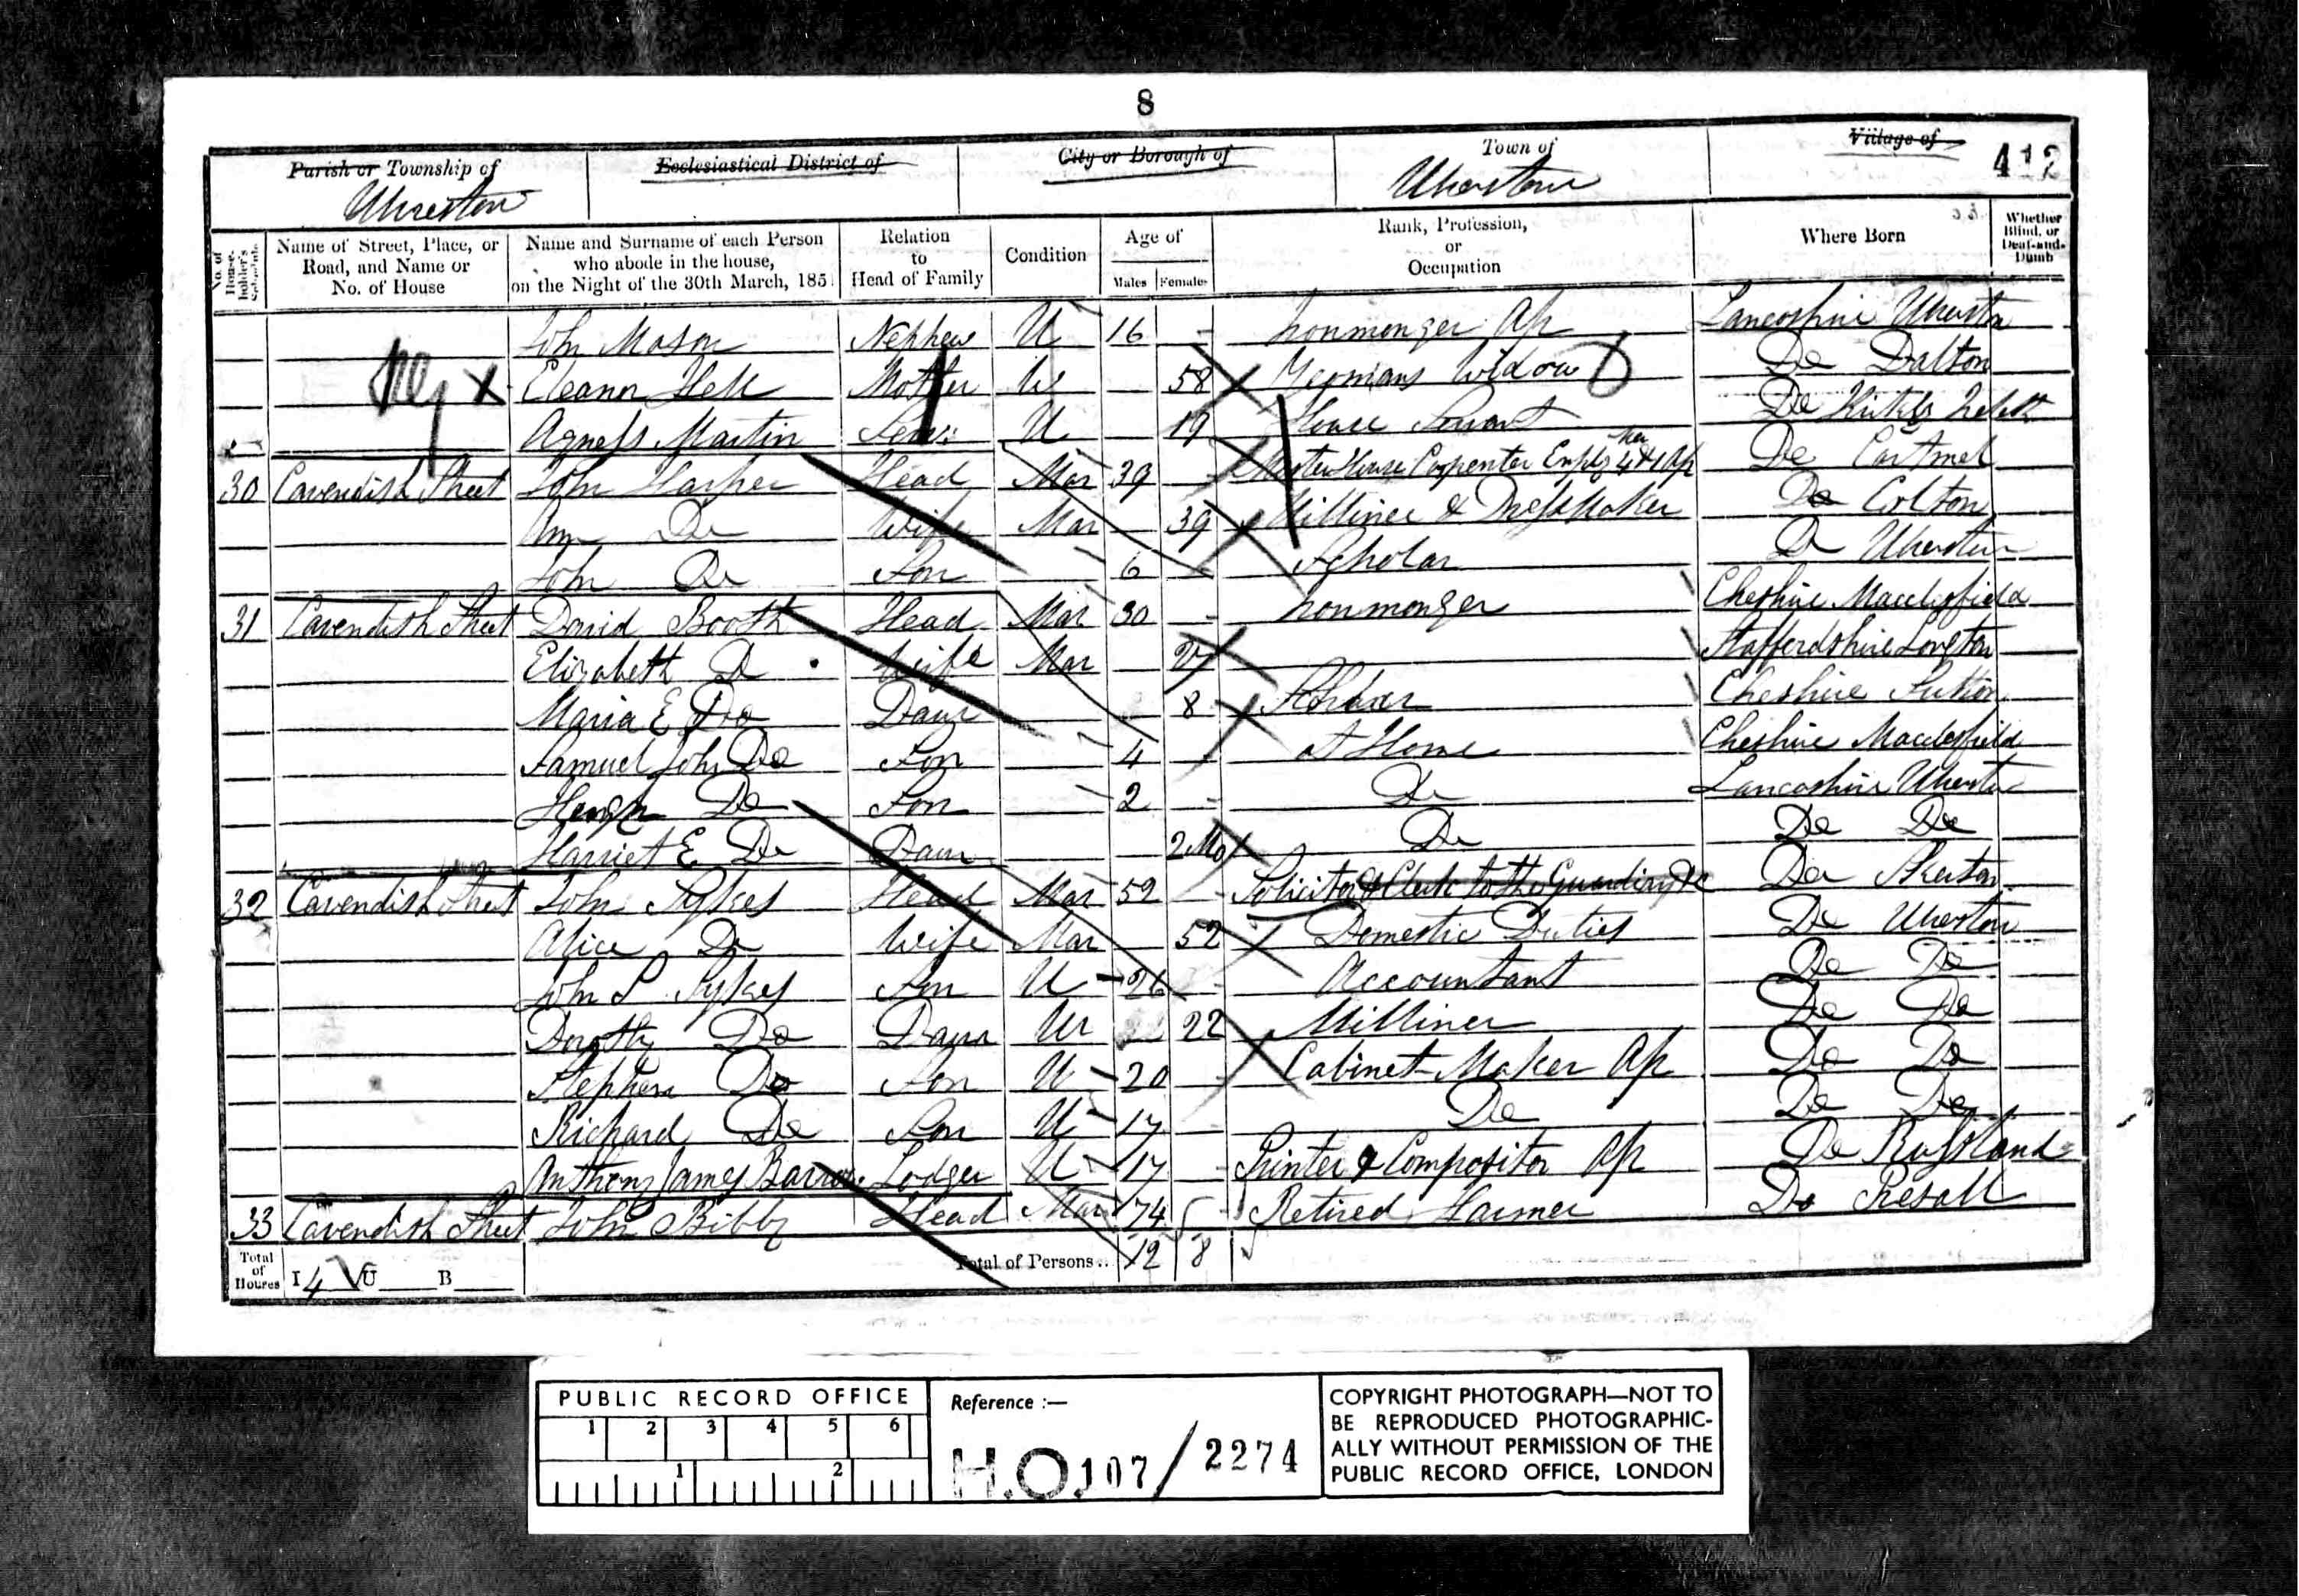 8
Parish or Township of Ecclesiastical District of City or Borough of Town of Village of
412
Ulverston Ulverston
No. of House-holder's Schedule Name of Street, Place, or Road, and Name or No. of House Name and Surname of each Person who abode in the house, on the Night of the 30th March, 1851 Relation to Head of Family Condition Age of Males Females Rank, Profession, or Occupation Where Born Whether Blind, or Deaf-and-Dumb
John Mason Nephew U 16 Ironmonger Ap Lancashire Ulverston
Eleanor Hell Mother W 58 Yeomans Widow Do Dalton
Agness Martin Serv: U 19 House Servant De
30 Cavendish Street John Harper Head Mar 39 Master House Carpenter Employ 4 Men & 1 Ap De Cartmel
Ann De Wife Mar 39 Milliner & Dress Maker De Colton
John De Son 6 Scholar De Ulverston
31 Cavendish Street David Booth Head Mar 30 Ironmonger Cheshire Macclesfield
Elizabeth D Wife Mar 27 Staffordshire Longton
Maria E Do Daur 8 Scholar Cheshire Sutton
Samuel John De Son 4 at Home Cheshire Macclesfield
Hugh De Son 2 De Lancashire Ulverston
Harriet E De Daur 2 Mo De De De
32 Cavendish Street John Sykes Head Mar 52 Solicitor & Clerk to the Guardians &c De
Alice De Wife Mar 52 Domestic Duties De Ulverston
John S Sykes Son U 26 Accountant De De
Dorothy Do Daur U 22 Milliner De De
Stephen Do Son U 20 Cabinet Maker Ap De De
Richard De Son U 17 De De De
Anthony James Barrow Lodger U 17 Printer & Compositor Ap De Russland
33 Cavendish Street John Bibby Head Mar 74 Retired Farmer Do
Total of Houses I 4 U B Total of Persons.. 12 8
PUBLIC RECORD OFFICE
1 2 3 4 5 6
1 2
Reference :—
H.O.107/2274
COPYRIGHT PHOTOGRAPH—NOT TO
BE REPRODUCED PHOTOGRAPHIC-
ALLY WITHOUT PERMISSION OF THE
PUBLIC RECORD OFFICE, LONDON